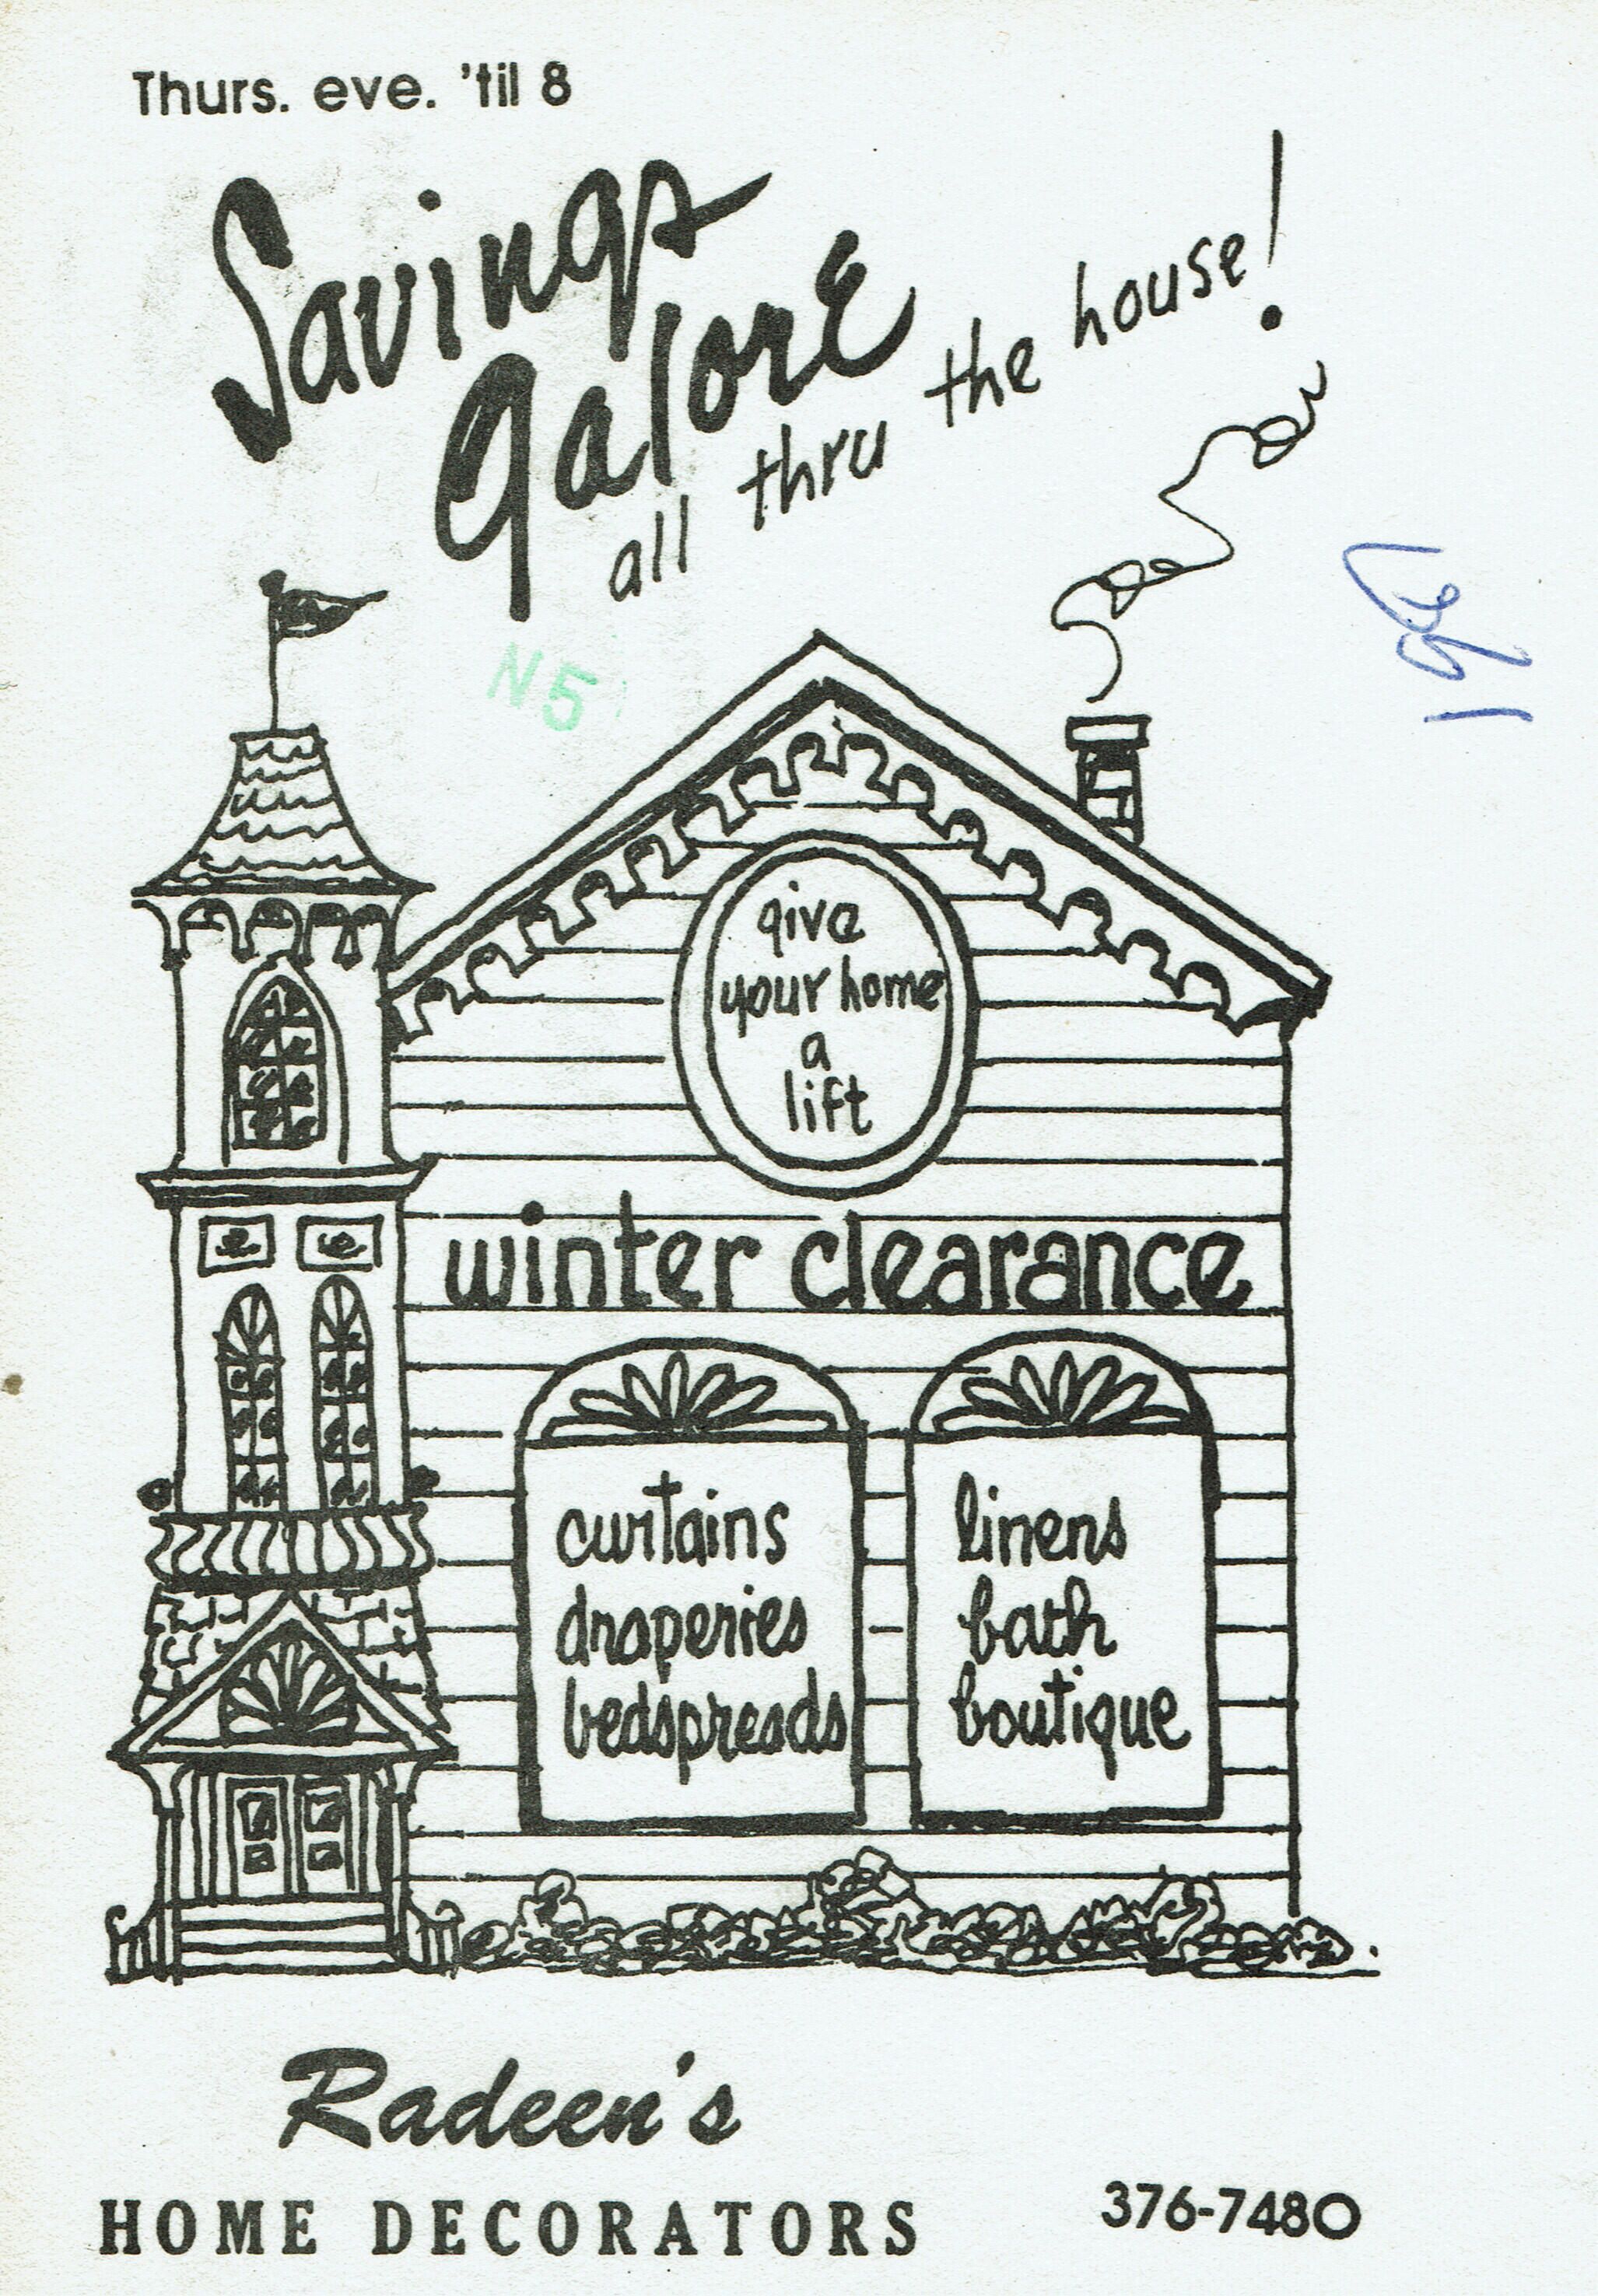 Thurs. eve. 'til 8
Savings
Galore
all thru the house!
N5
give
your home
a
lift
winter clearance
curtains
draperies
bedspreads
linens
bath
boutique
Radeen's
HOME DECORATORS
376-7480